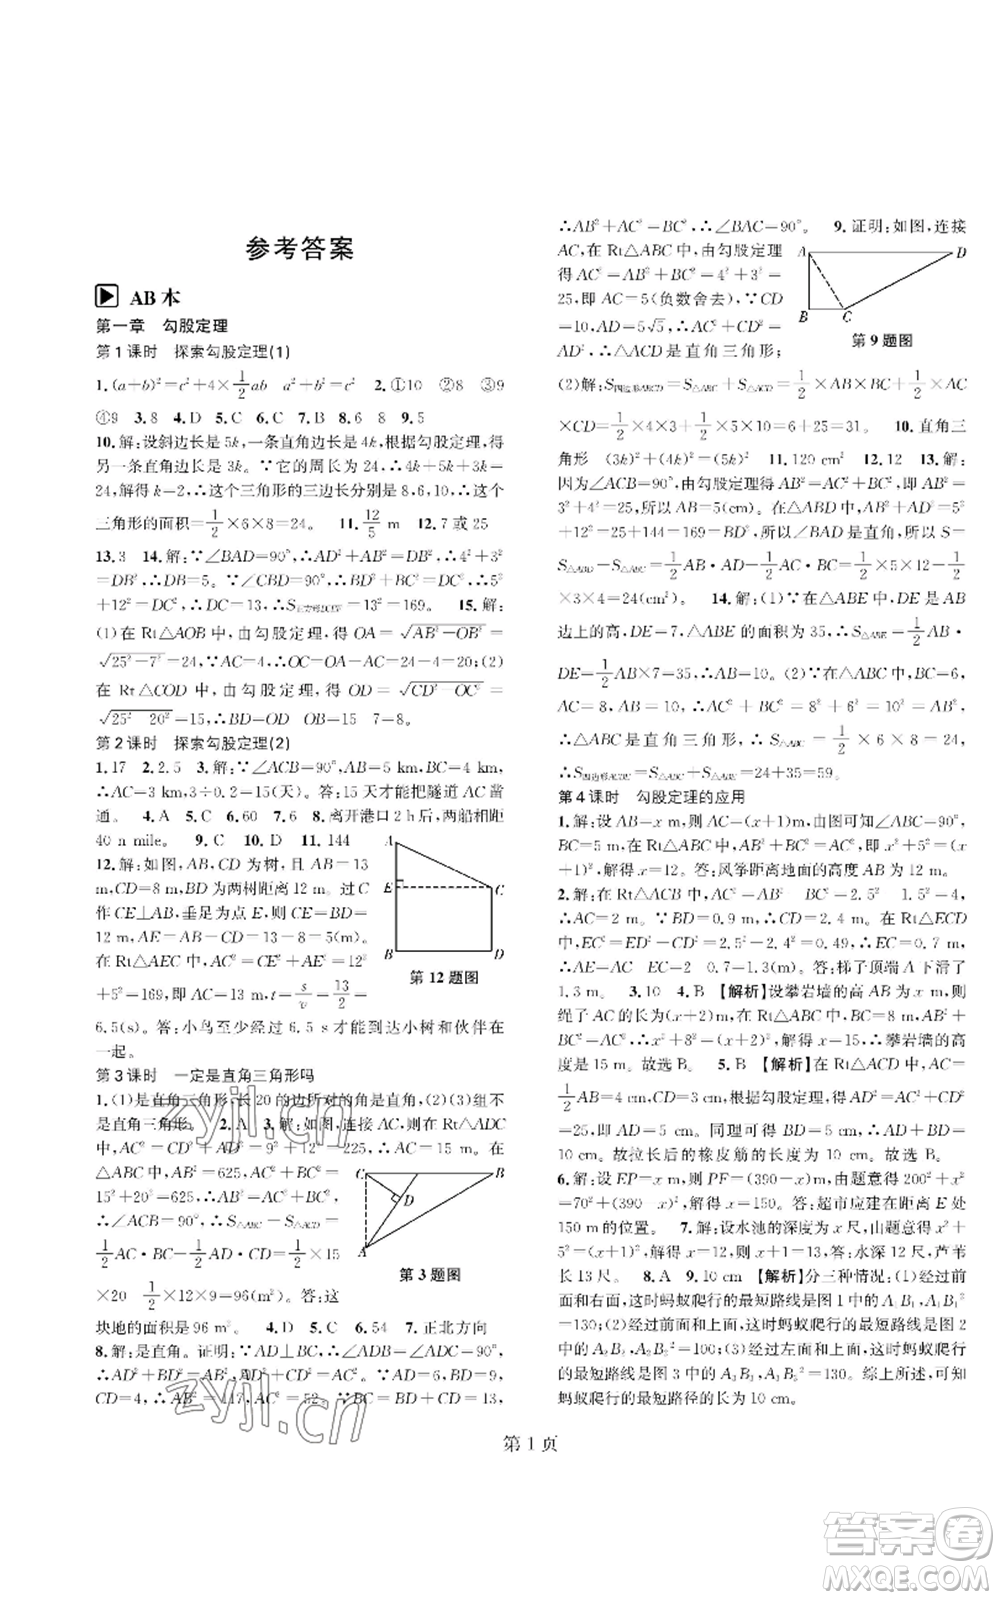 参考答案
AB本
第一章 勾股定理
第1课时 探索勾股定理(1)
1.(a+b)²=c²+4×1/2ab a²+b²=c² 2.①10 ②8 ③9
④9 3.8 4.D 5.C 6.C 7.B 8.6 8 9.5
10.解:设斜边长是5k,一条直角边长是4k,根据勾股定理,得
另一条直角边长是3k.∵它的周长为24,∴4k+5k+3k=
24,解得k=2,∴这个三角形的三边长分别是8,6,10,∴这个
三角形的面积=1/2×6×8=24. 11.12/5 m 12.7或25
13.3 14.解:∵∠BAD=90°,∴AD²+AB²=DB²,∴4²+3²
=DB²,∴DB=5。∵∠DBC=90°,∴BD²+BC²=DC²,∴5²
+12²=DC²,∴DC=13,∴S正方形DCEF=13²=169. 15.解:
(1)在Rt△AOB中,由勾股定理,得OA=√AB²-OB²=
√25²-7²=24,∵AC=4,∴OC=OA-AC=24-4=20;(2)
在Rt△COD中,由勾股定理,得OD=√CD²-OC²=
√25² 20²=15,∴BD=OD OB=15 7=8.
第2课时 探索勾股定理(2)
1.17 2.2.5 3.解:∵∠ACB=90°,AB=5 km,BC=4 km,
∴AC=3 km,∴3÷0.2=15(天)。答:15天才能把隧道AC凿
通。 4.A 5.C 6.60 7.6 8.离开港口2 h后,两船相距
40 n mile. 9.C 10.D 11.144
12.解:如图,AB,CD为树,且AB=13
m,CD=8 m,BD为两树距离12 m。过C
作CE⊥AB,垂足为点E,则CE=BD=
12 m,AE=AB-CD=13-8=5(m)。
在Rt△AEC中,AC²=CE²+AE²=12²
+5²=169,即AC=13 m,t=s/v=13/2=
6.5(s)。答:小鸟至少经过6.5 s才能到达小树和伙伴在
一起。
第12题图
第3课时 一定是直角三角形吗
1.(1)是直角三角形,长20的边所对的角是直角,(2)(3)组不
是直角三角形。 2.A 3.解:如图,连接AC,则在Rt△ADC
中,AC²=CD²+AD²=12²+9²=15²,∴AC=15 m。在
△ABC中,AB²=625,AC²+BC²=
15²+20²=625,∴AB²=AC²+BC²,
∴∠ACB=90°,∴S△ABC-S△ACD=
1/2AC·BC-1/2AD·CD=1/2×15
×20 1/2×12×9=96(m²)。答:这
块地的面积是96 m². 4.D 5.C 6.54 7.正北方向
第3题图
8.解:是直角。证明:∵AD⊥BC,∴∠ADB=∠ADC=90°,
∴AD²+BD²=AB²,AD²+CD²=AC²。∵AD=6,BD=9,
CD=4,∴AB²=117,AC²=52。∵BC=BD+CD=13,
∴AB²+AC²=BC²,∴∠BAC=90°。 9.证明:如图,连接
AC,在Rt△ABC中,由勾股定理
得AC²=AB²+BC²=4²+3²=
25,即AC=5(负数舍去),∵CD
=10,AD=5√5,∴AC²+CD²=
AD²,∴△ACD是直角三角形;
第9题图
(2)解:S四边形ABCD=S△ABC+S△ACD=1/2×AB×BC+1/2×AC
×CD=1/2×4×3+1/2×5×10=31。 10.直角三
角形 (3k)²+(4k)²=(5k)² 11.120 cm² 12.12 13.解:
因为∠ACB=90°,由勾股定理得AB²=AC²+BC²,即
AB²=4²+3²=25,所以AB=5(cm)。在△ABD中,AB²=5²
+12²=25+144=169=BD²,所以∠BAD为直角,所以S=
S△ABD-S△ABC=1/2AB·AD-1/2AC·BC=1/2×5×12-1/2
×3×4=24(cm²)。 14.解:(1)∵在△ABE中,DE是AB
边上的高,DE=7,△ABE的面积为35,∴S△ABE=1/2AB·
DE=1/2×AB×7=35,∴AB=10;(2)∵在△ABC中,BC=6,
AC=8,AB=10,∴AC²+BC²=8²+6²=10²=AB²,
∴△ABC是直角三角形,∴S△ABC=1/2×6×8=24,
∴S四边形ACBE=S△ABC+S△ABE=24+35=59.
第4课时 勾股定理的应用
1.解:设AB=x m,则AC=(x+1)m,由图可得∠ABC=90°,
BC=5 m,在Rt△ABC中,AB²+BC²=AC²,即x²+5²=(x+
1)²,解得x=12。答:风筝距离地面的高度AB为12 m。
2.解:在Rt△ABC中,AC²=AB² BC²=2.5² 1.5²=4,
∴AC=2 m。∵BD=0.9 m,∴CD=2.4 m。在Rt△ECD
中,EC²=ED²-CD²=2.5²-2.4²=0.49,∴EC=0.7 m,
∴AE=AC EC=2 0.7=1.3(m)。答:梯子顶端A下滑了
1.3 m。 3.10 4.B 【解析】设攀岩墙的高AB为x m,则
绳子AC的长为(x+2)m。在Rt△ABC中,BC=8 m,
AB²+BC²=AC²,∴x²+8²=(x+2)²,解得x=15,∴攀岩墙的高
度是15 m。故选B。 5.B 【解析】∵Rt△ACD中,AC=
1/2AB=4 cm,CD=3 cm,根据勾股定理,得AD²=AC²+CD²
=25,∴AD=5 cm。同理可得BD=5 cm,∴AD+BD
-AB=10-8=2(cm)。故拉长后的橡皮筋的长度为10 cm。故选B。
6.解:设EP=x m,则PF=(390-x)m,由题意得200²+x²
=70²+(390 x)²,解得x=150。答:超市应建在距离E处
150 m的位置。 7.解:设水池的深度为x尺,由题意得x²
+5²=(x+1)²,解得x=12,∴x+1=13。答:水深12尺,芦苇长
13尺。 8.A 9.10 cm 【解析】分三种情况:(1)经过前
面和右面,这时蚂蚁爬行的最短路线是图1中的A₁B₁,A₁B₁²
=130;(2)经过前面和上面,这时蚂蚁爬行的最短路线是图2
中的A₂B₂,A₂B₂²=100;(3)经过左面和上面,这时蚂蚁爬行
的最短路线是图3中的A₃B₃,A₃B₃²=130。综上所述,可知
蚂蚁爬行的最短路径的长为10 cm。
第1页
zyjl.cn
zyjl.cn
答案卷
MXQE.COM